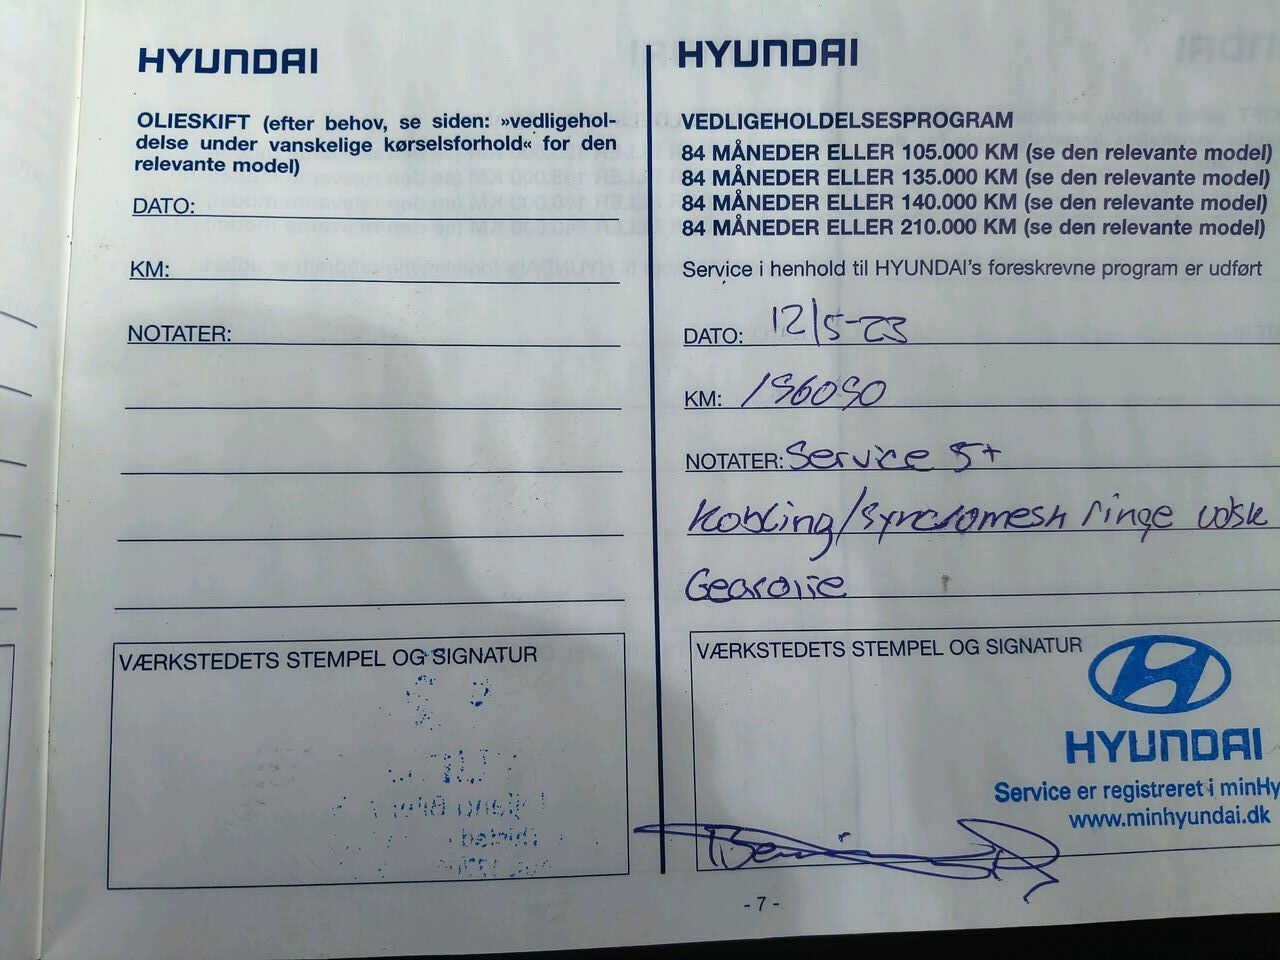 HYUNDAI
OLIESKIFT (efter behov, se siden: »vedligehol-
delse under vanskelige kørselsforhold« for den
relevante model)
DATO:
KM:
NOTATER:
VÆRKSTEDETS STEMPEL OG SIGNATUR
HYUNDAI
VEDLIGEHOLDELSESPROGRAM
84 MÅNEDER ELLER 105.000 KM (se den relevante model)
84 MÅNEDER ELLER 135.000 KM (se den relevante model)
84 MÅNEDER ELLER 140.000 KM (se den relevante model)
84 MÅNEDER ELLER 210.000 KM (se den relevante model)
Service i henhold til HYUNDAI's foreskrevne program er udført
DATO: 12/5-23
KM: 196090
NOTATER: Service 5+
Kobling/syncromesh ringe udsk
Gearolie
VÆRKSTEDETS STEMPEL OG SIGNATUR
HYUNDAI
Service er registreret i minHy
www.minhyundai.dk
- 7 -